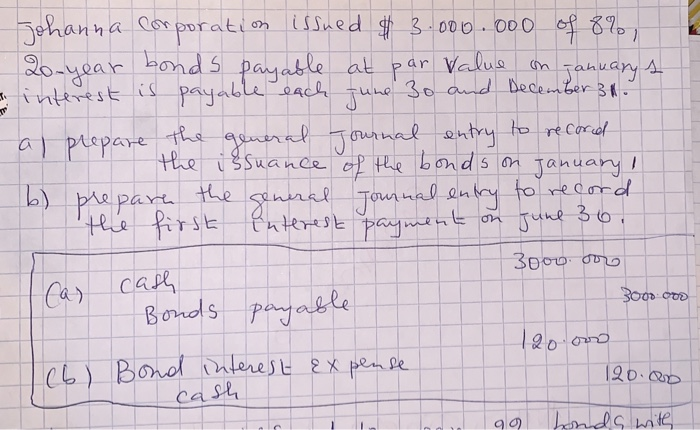 Johanna Corporation issued $ 3.000.000 of 8%,
20-year bonds payable at par value on january 1
interest is payable each june 30 and December 31.
a) prepare the general Journal entry to record
the issuance of the bonds on january 1
b) prepare the general Journal entry to record
the first interest payment on june 30.
(a) cash 3000.000
Bonds payable 3000.000
(b) Bond interest expense 120.000
cash 120.000
99 bonds with